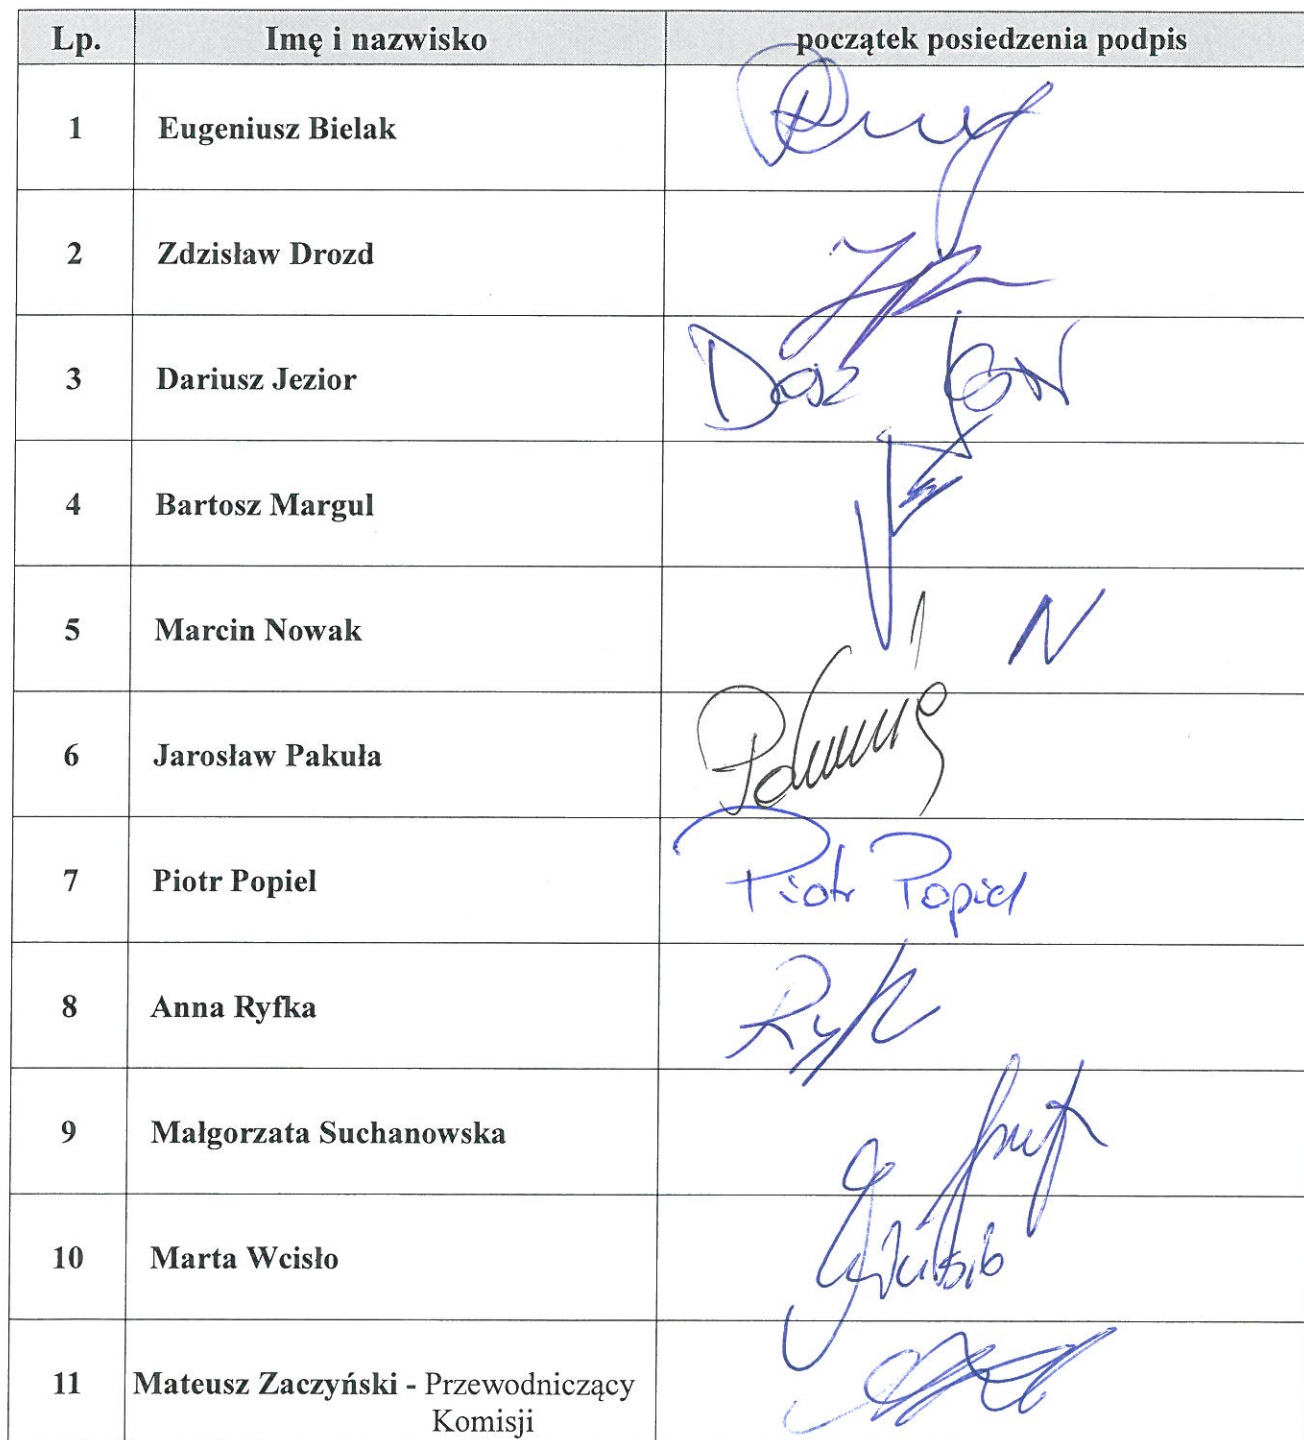 Lp. Imę i nazwisko początek posiedzenia podpis
1 Eugeniusz Bielak
2 Zdzisław Drozd
3 Dariusz Jezior
4 Bartosz Margul
5 Marcin Nowak N
6 Jarosław Pakuła
7 Piotr Popiel Piotr Popiel
8 Anna Ryfka
9 Małgorzata Suchanowska
10 Marta Wcisło
11 Mateusz Zaczyński - Przewodniczący
Komisji